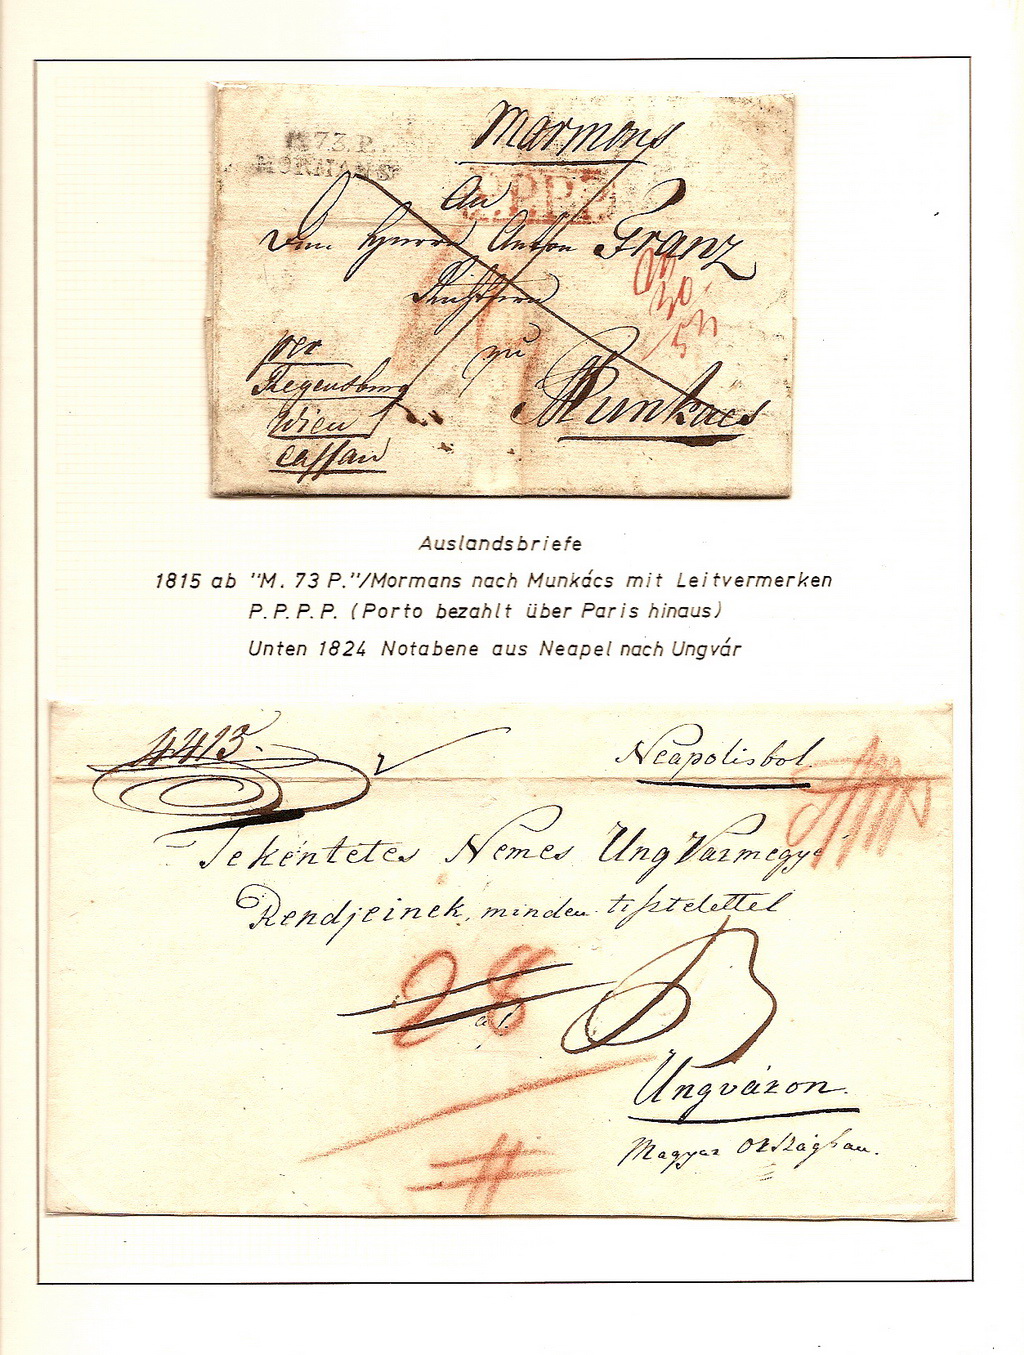 Marmons
P. 73. P.
MORMANS
P.P.P.P.
An
Dem Herrn Anton Franz
zu
Munkacs
per
Regensburg
Wien
Cassau
20.
Auslandsbriefe
1815 ab "M. 73 P."/Mormans nach Munkács mit Leitvermerken
P.P.P.P. (Porto bezahlt über Paris hinaus)
Unten 1824 Notabene aus Neapel nach Ungvár
4413.
Neapolisbol.
Tekéntetes Nemes Ung Varmegye
Rendjeinek, minden tisztelettel
28
Ungváron.
Magyar Országban.